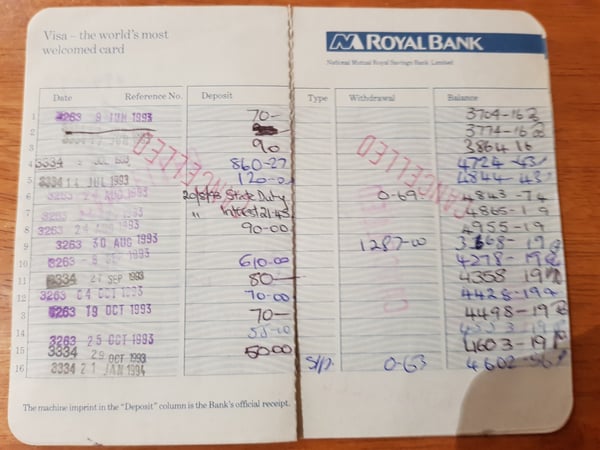 Visa – the world's most
welcomed card
ROYAL BANK
National Mutual Royal Savings Bank Limited
Date Reference No. Deposit Type Withdrawal Balance
1 3263 9 JUN 1993 70- 3704-16
2 3774-16
3 90 3864 16
4 3334 JUL 1993 860-27 4724-43
5 3334 JUL 1993 120-00 4844-43
6 20/8/93 State Duty 0-69 4843-74
7 " Interest 21-45 4865-19
8 AUG 1993 90-00 4955-19
9 3263 30 AUG 1993 1287-00 3668-19
10 3263 SEP 1993 610-00 4278-19
11 3334 27 SEP 1993 80- 4358 19
12 3263 04 OCT 1993 70-00 4428-19
3 3263 19 OCT 1993 70- 4498-19
14 55-00 4553-19
15 3263 25 OCT 1993 50.00 4603-19
3334 29 OCT 1993
16 3334 21 JAN 1994 S/D. 0-63 4602-56
CANCELLED
CANCELLED
The machine imprint in the "Deposit" column is the Bank's official receipt.